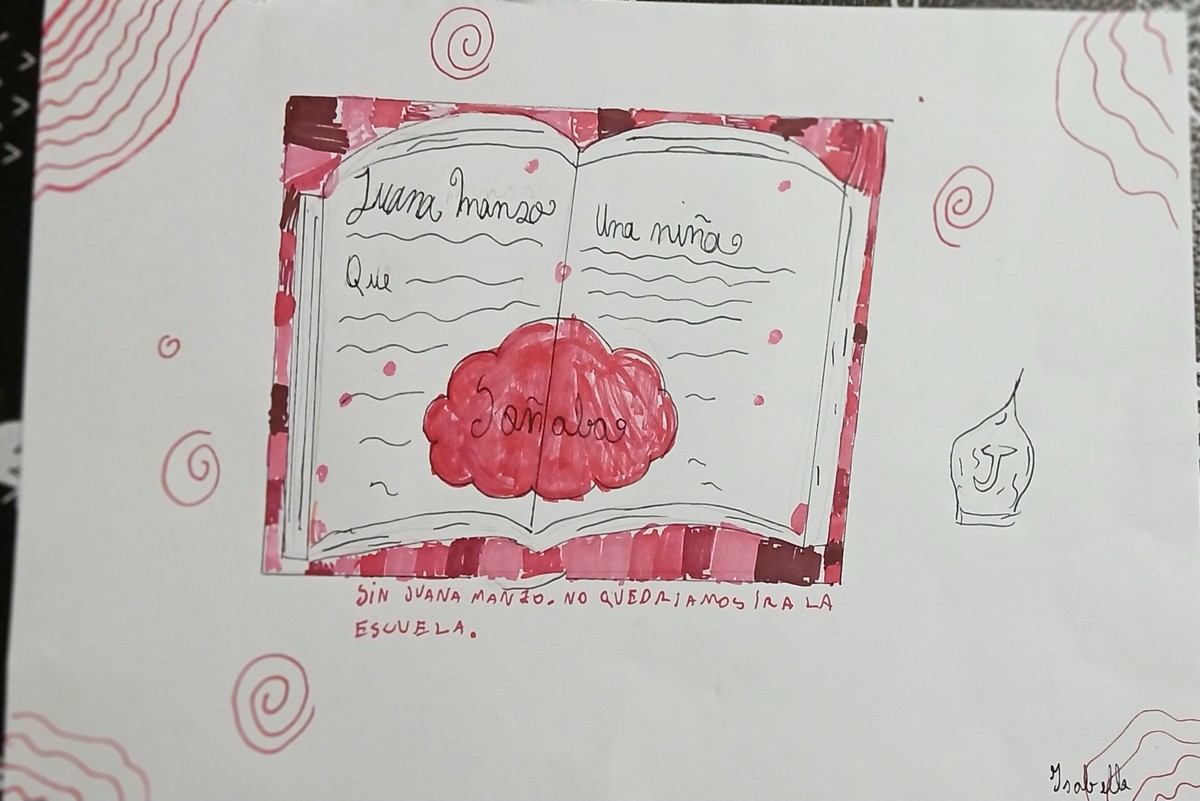 Juana Manso
Que
Una niña
Soñaba
J
SIN JUANA MANZO. NO QUEDRIAMOS IR A LA
ESCUELA.
Isabella